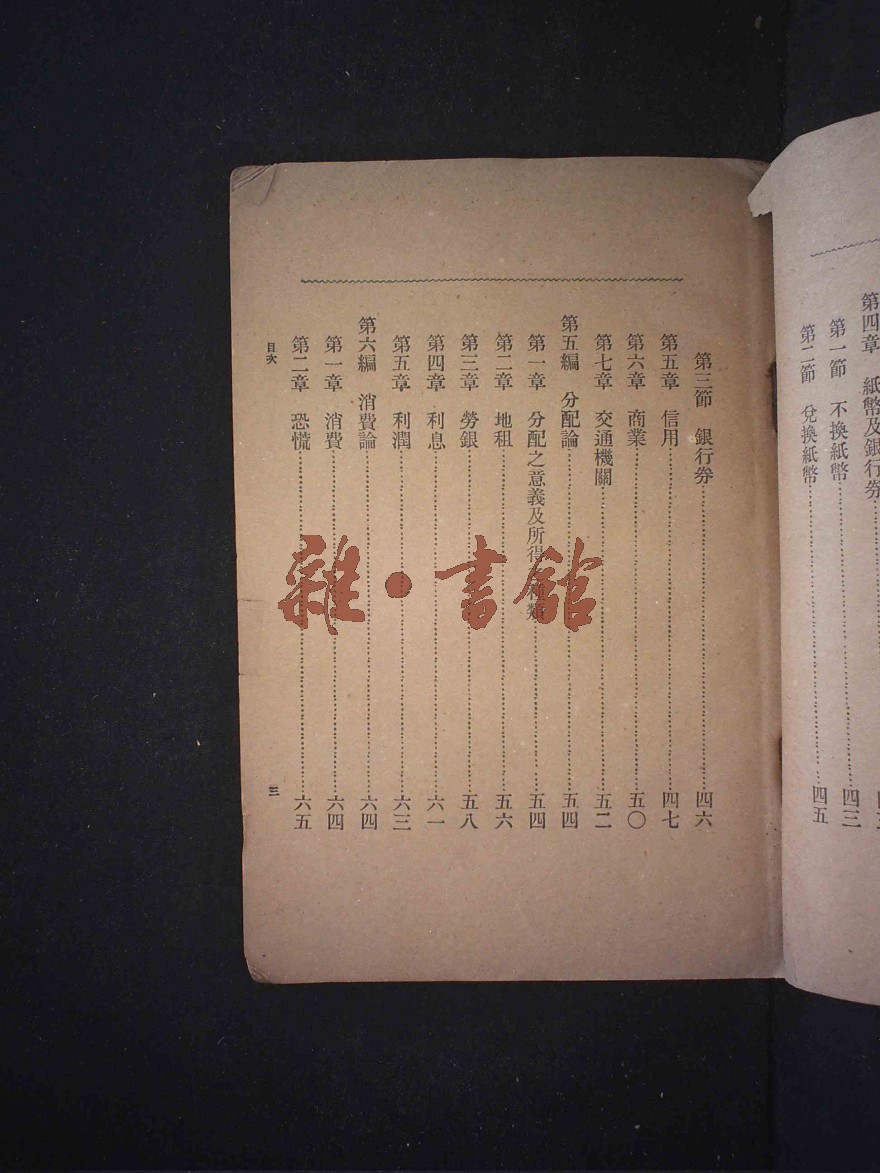 第四章 紙幣及銀行券
第一節 不換紙幣……四三
第二節 兌換紙幣……四五
第三節 銀行券……四六
第五章 信用……四七
第六章 商業……五〇
第七章 交通機關……五二
第五編 分配論……五四
第一章 分配之意義及所得 種類……五四
第二章 地租……五六
第三章 勞銀……五八
第四章 利息……六一
第五章 利潤……六三
第六編 消費論……六四
第一章 消費……六四
第二章 恐慌……六五
目次
三
雜·書館